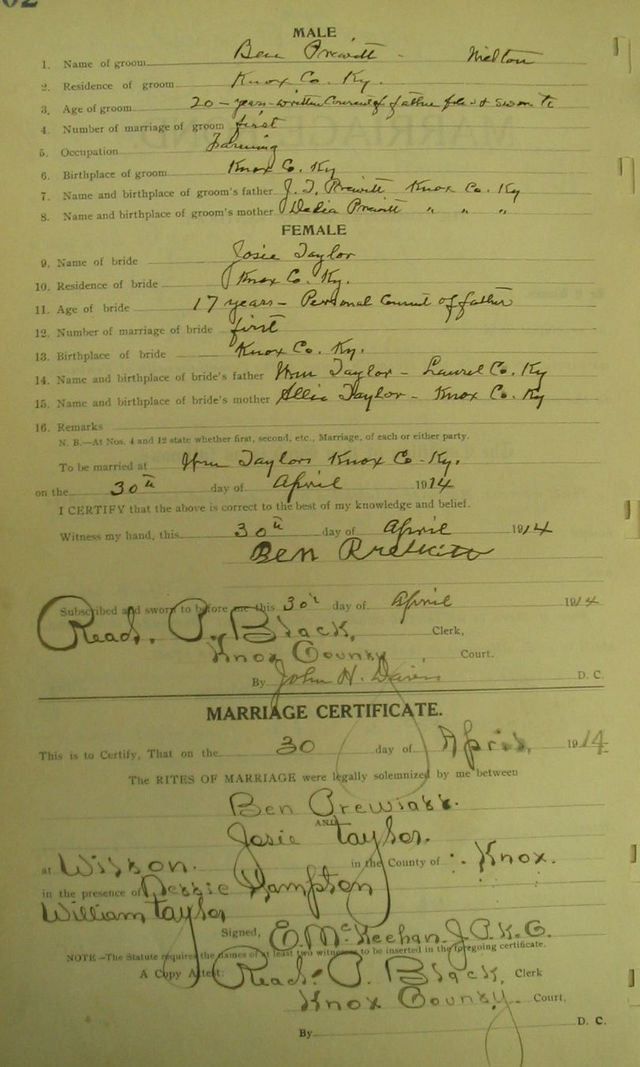 02
MALE
1. Name of groom Ben Prewitt - Melton
2. Residence of groom Knox Co. Ky.
3. Age of groom 20 - years - written Consent of father filed & sworn to
4. Number of marriage of groom first
5. Occupation Farming
6. Birthplace of groom Knox Co. Ky
7. Name and birthplace of groom's father J. T. Prewitt Knox Co. Ky
8. Name and birthplace of groom's mother Prewitt " " "
FEMALE
9. Name of bride Josie Taylor
10. Residence of bride Knox Co. Ky.
11. Age of bride 17 years - Personal Consent of father
12. Number of marriage of bride first
13. Birthplace of bride Knox Co. Ky.
14. Name and birthplace of bride's father Wm Taylor - Laurel Co. Ky
15. Name and birthplace of bride's mother Allie Taylor - Knox Co. Ky
16. Remarks
N. B.—At Nos. 4 and 12 state whether first, second, etc., Marriage, of each or either party.
To be married at Wm Taylors Knox Co. Ky.
on the 30th day of April 1914
I CERTIFY that the above is correct to the best of my knowledge and belief.
Witness my hand, this 30th day of April 1914
Ben
Subscribed and sworn to before me this 30th day of April 1914
Read. P. Black, Clerk,
Knox County Court.
By John H. D. C.
MARRIAGE CERTIFICATE.
This is to Certify, That on the 30 day of April, 1914
The RITES OF MARRIAGE were legally solemnized by me between
Ben
AND
Josie Taylor.
at Wilson. in the County of Knox.
in the presence of Hampton
William Taylor
Signed, E. McKeehan J.P.K.C.
NOTE—The Statute requires the names of at least two witnesses to be inserted in the foregoing certificate.
A Copy Attest: Read. P. Black, Clerk
Knox County. Court.
By D. C.